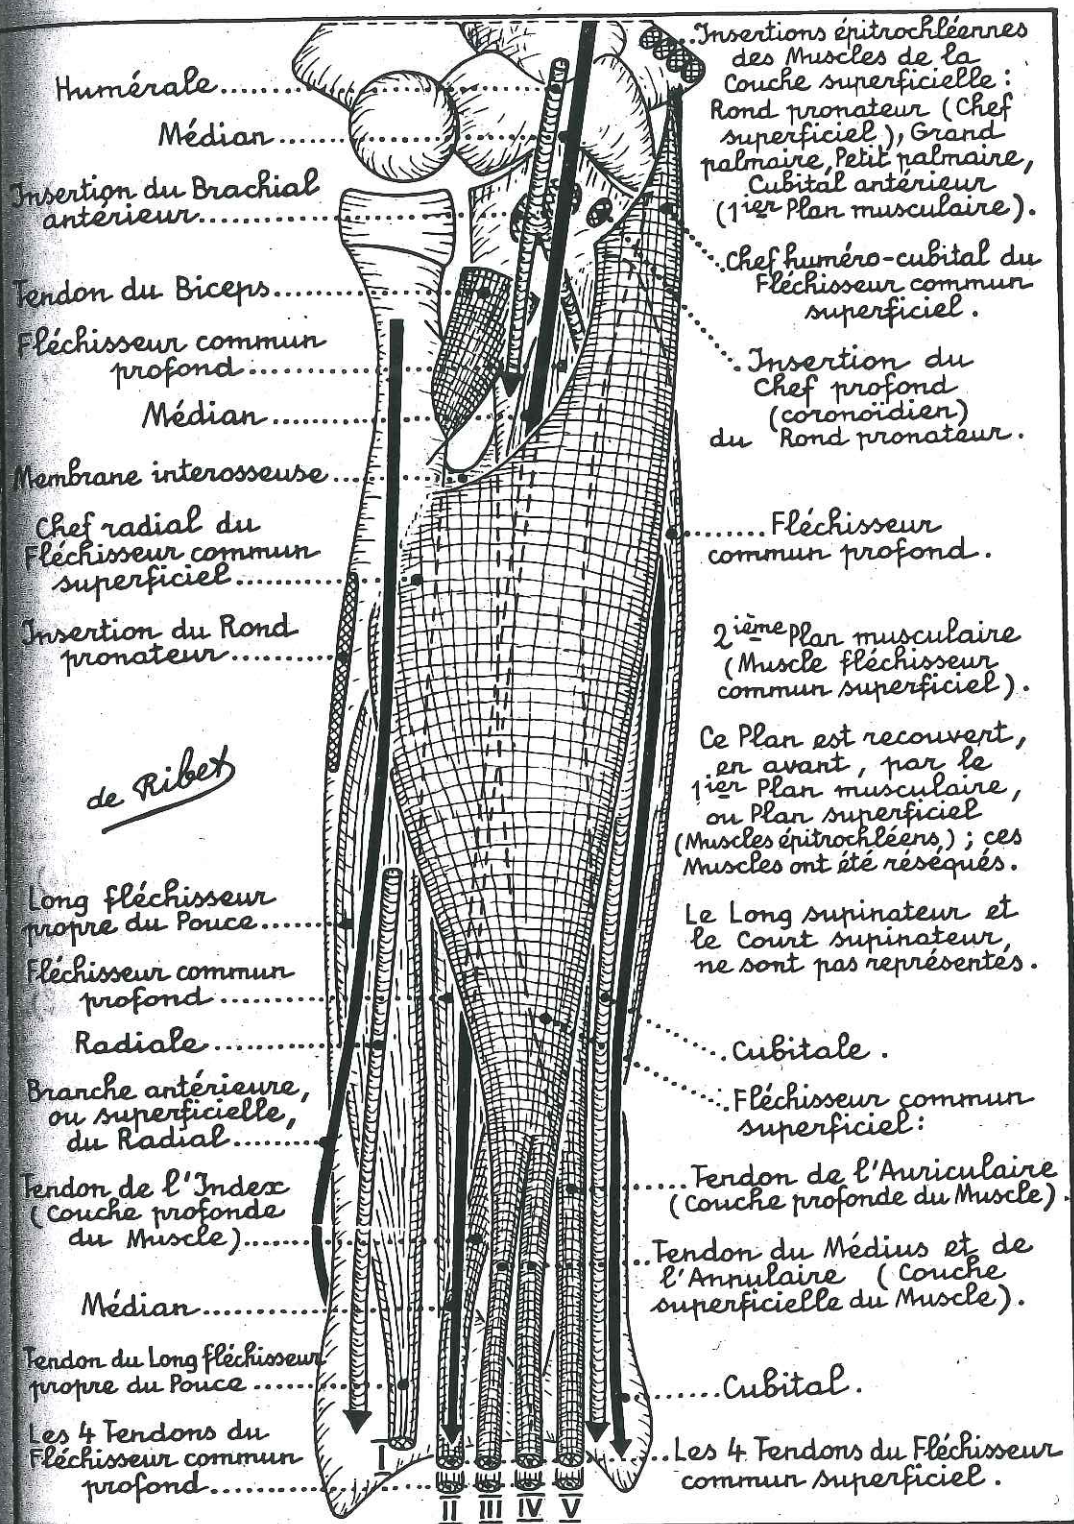 Humérale
Médian
Insertion du Brachial
antérieur
Tendon du Biceps
Fléchisseur commun
profond
Médian
Membrane interosseuse
Chef radial du
Fléchisseur commun
superficiel
Insertion du Rond
pronateur
de Ribet
Long fléchisseur
propre du Pouce
Fléchisseur commun
profond
Radiale
Branche antérieure,
ou superficielle,
du Radial
Tendon de l'Index
(Couche profonde
du Muscle)
Médian
Tendon du Long fléchisseur
propre du Pouce
Les 4 Tendons du
Fléchisseur commun
profond
I
II III IV V
Insertions épitrochléennes
des Muscles de la
Couche superficielle :
Rond pronateur (Chef
superficiel), Grand
palmaire, Petit palmaire,
Cubital antérieur
(1ier Plan musculaire).
Chef huméro-cubital du
Fléchisseur commun
superficiel.
Insertion du
Chef profond
(coronoïdien)
du Rond pronateur.
Fléchisseur
commun profond.
2ième Plan musculaire
(Muscle fléchisseur
commun superficiel).
Ce Plan est recouvert,
en avant, par le
1ier Plan musculaire,
ou Plan superficiel
(Muscles épitrochléens) ; ces
Muscles ont été réséqués.
Le Long supinateur et
le Court supinateur,
ne sont pas représentés.
Cubitale.
Fléchisseur commun
superficiel:
Tendon de l'Auriculaire
(Couche profonde du Muscle).
Tendon du Médius et de
l'Annulaire (Couche
superficielle du Muscle).
Cubital.
Les 4 Tendons du Fléchisseur
commun superficiel.